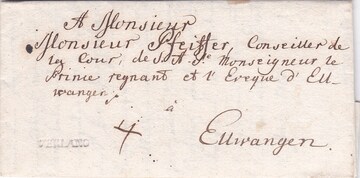 A Monsieur
Monsieur Pfeiffer, Conseiller de
la Cour, de S A S. Monseigneur le
Prince regnant et l'Eveque d'Ell-
wangen,
à
4 Ellwangen.